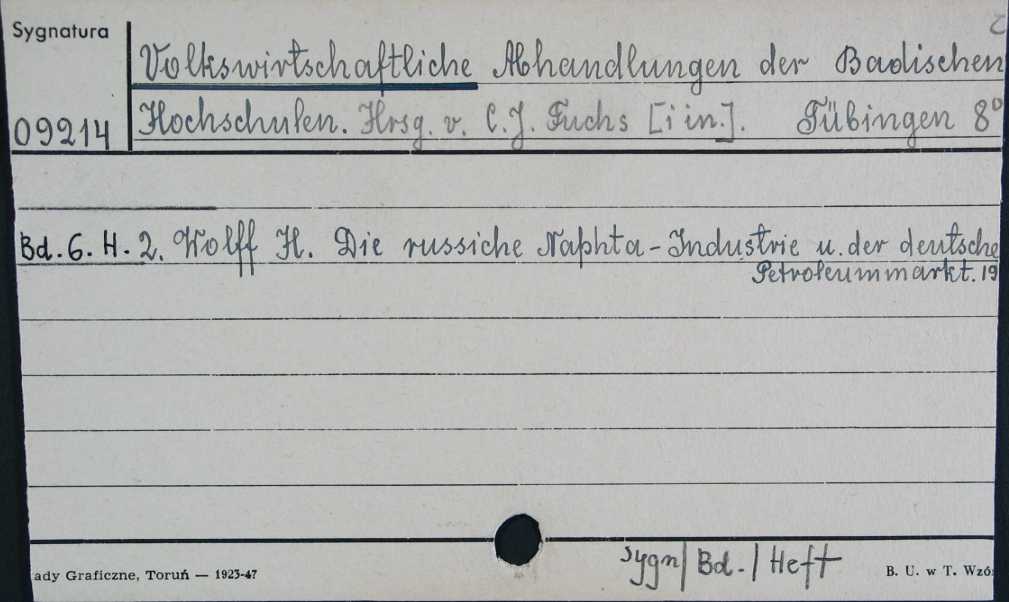 Sygnatura
Volkswirtschaftliche Abhandlungen der Badischen
09214 Hochschulen. Hrsg. v. C.J. Fuchs [i in.]. Tübingen 8°
Bd. 6. H. 2. Wolff H. Die russiche Naphta-Industrie u. der deutsche
Petroleummarkt. 19
Sygn/ Bd. / Heft
ady Graficzne, Toruń — 1923-47
B. U. w T. Wzó